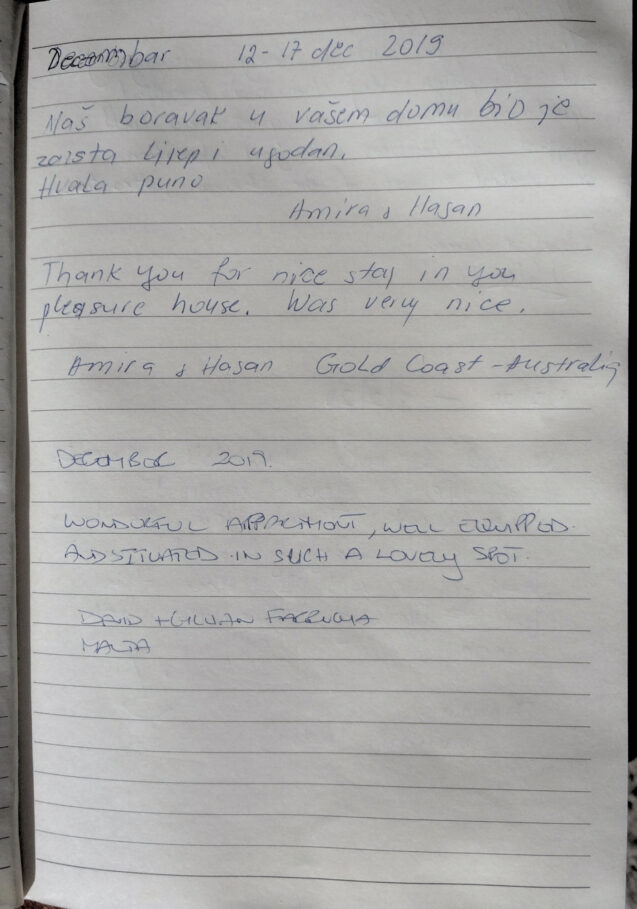 Decembar 12-17 dec 2019
Naš boravak u vašem domu bio je
zaista lijep i ugodan.
Hvala puno
Amira & Hasan
Thank you for nice stay in you
pleasure house. Was very nice.
Amira & Hasan Gold Coast - Australia
DECEMBER 2019.
WONDERFUL APPARTMENT, WELL EQUIPPED.
AND SITUATED IN SUCH A LOVELY SPOT.
DAVID + LILLIAN FARRUGIA
MALTA